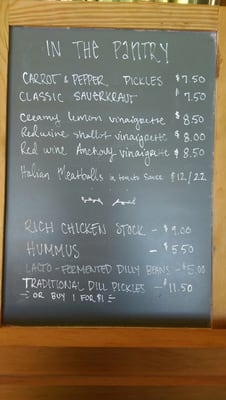 IN THE PANTRY
CARROT & PEPPER PICKLES $7.50
CLASSIC SAUERKRAUT $7.50
Creamy lemon vinaigrette $8.50
Red wine shallot vinaigrette $8.00
Red wine Anchovy vinaigrette $8.50
Italian Meatballs in tomato sauce $12/22
RICH CHICKEN STOCK - $9.00
HUMMUS - $5.50
LACTO-FERMENTED DILLY BEANS - $5.00
TRADITIONAL DILL PICKLES - $11.50
OR BUY 1 FOR $1